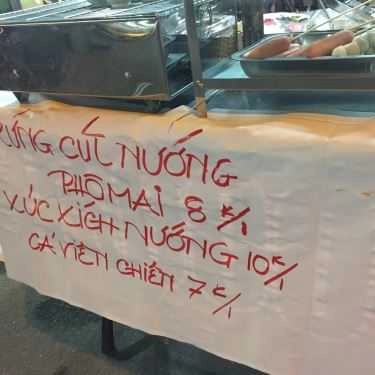 TRỨNG CÚT NƯỚNG
PHÔ MAI 8K/1
XÚC XÍCH NƯỚNG 10K/1
CÁ VIÊN CHIÊN 7K/1